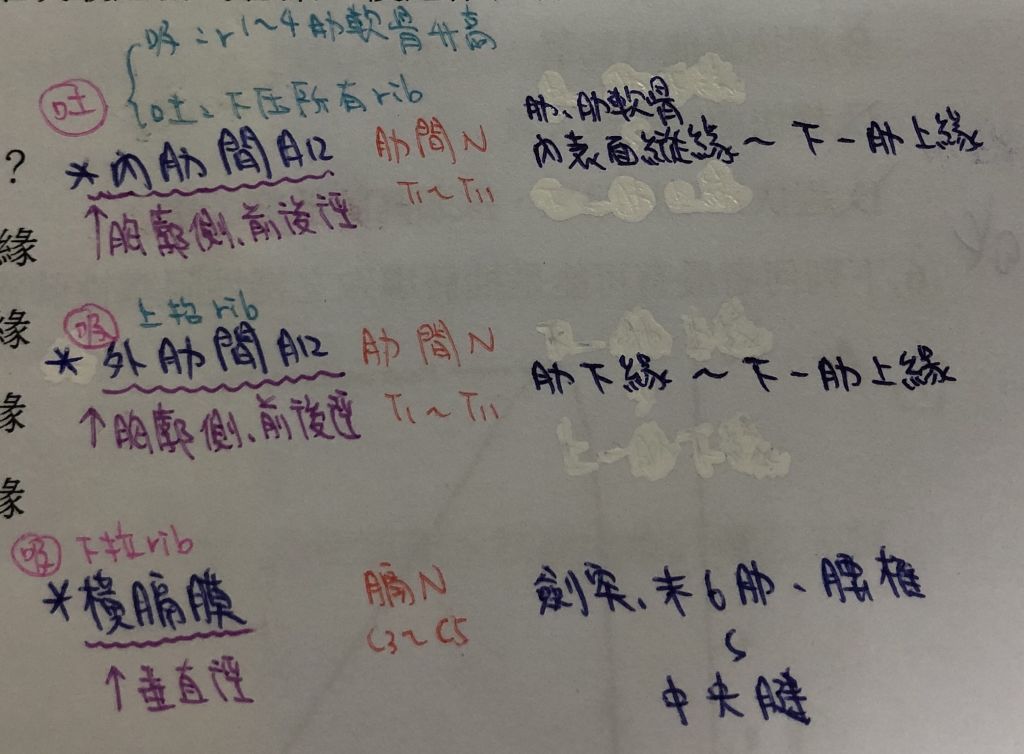 吸:r1~4肋軟骨升高
吐 吐:下压所有rib
肋、肋軟骨
? *內肋間肌 肋間N 內表面縱緣~下一肋上緣
↑胸廓側、前後徑 T1~T11
緣
緣 吸 上抬rib
*外肋間肌 肋間N 肋下緣~下一肋上緣
緣 ↑胸廓側、前後徑 T1~T11
緣
吸 下拉rib
*橫膈膜 膈N 劍突、末6肋、腰椎
C3~C5 ~
↑垂直徑 中央腱